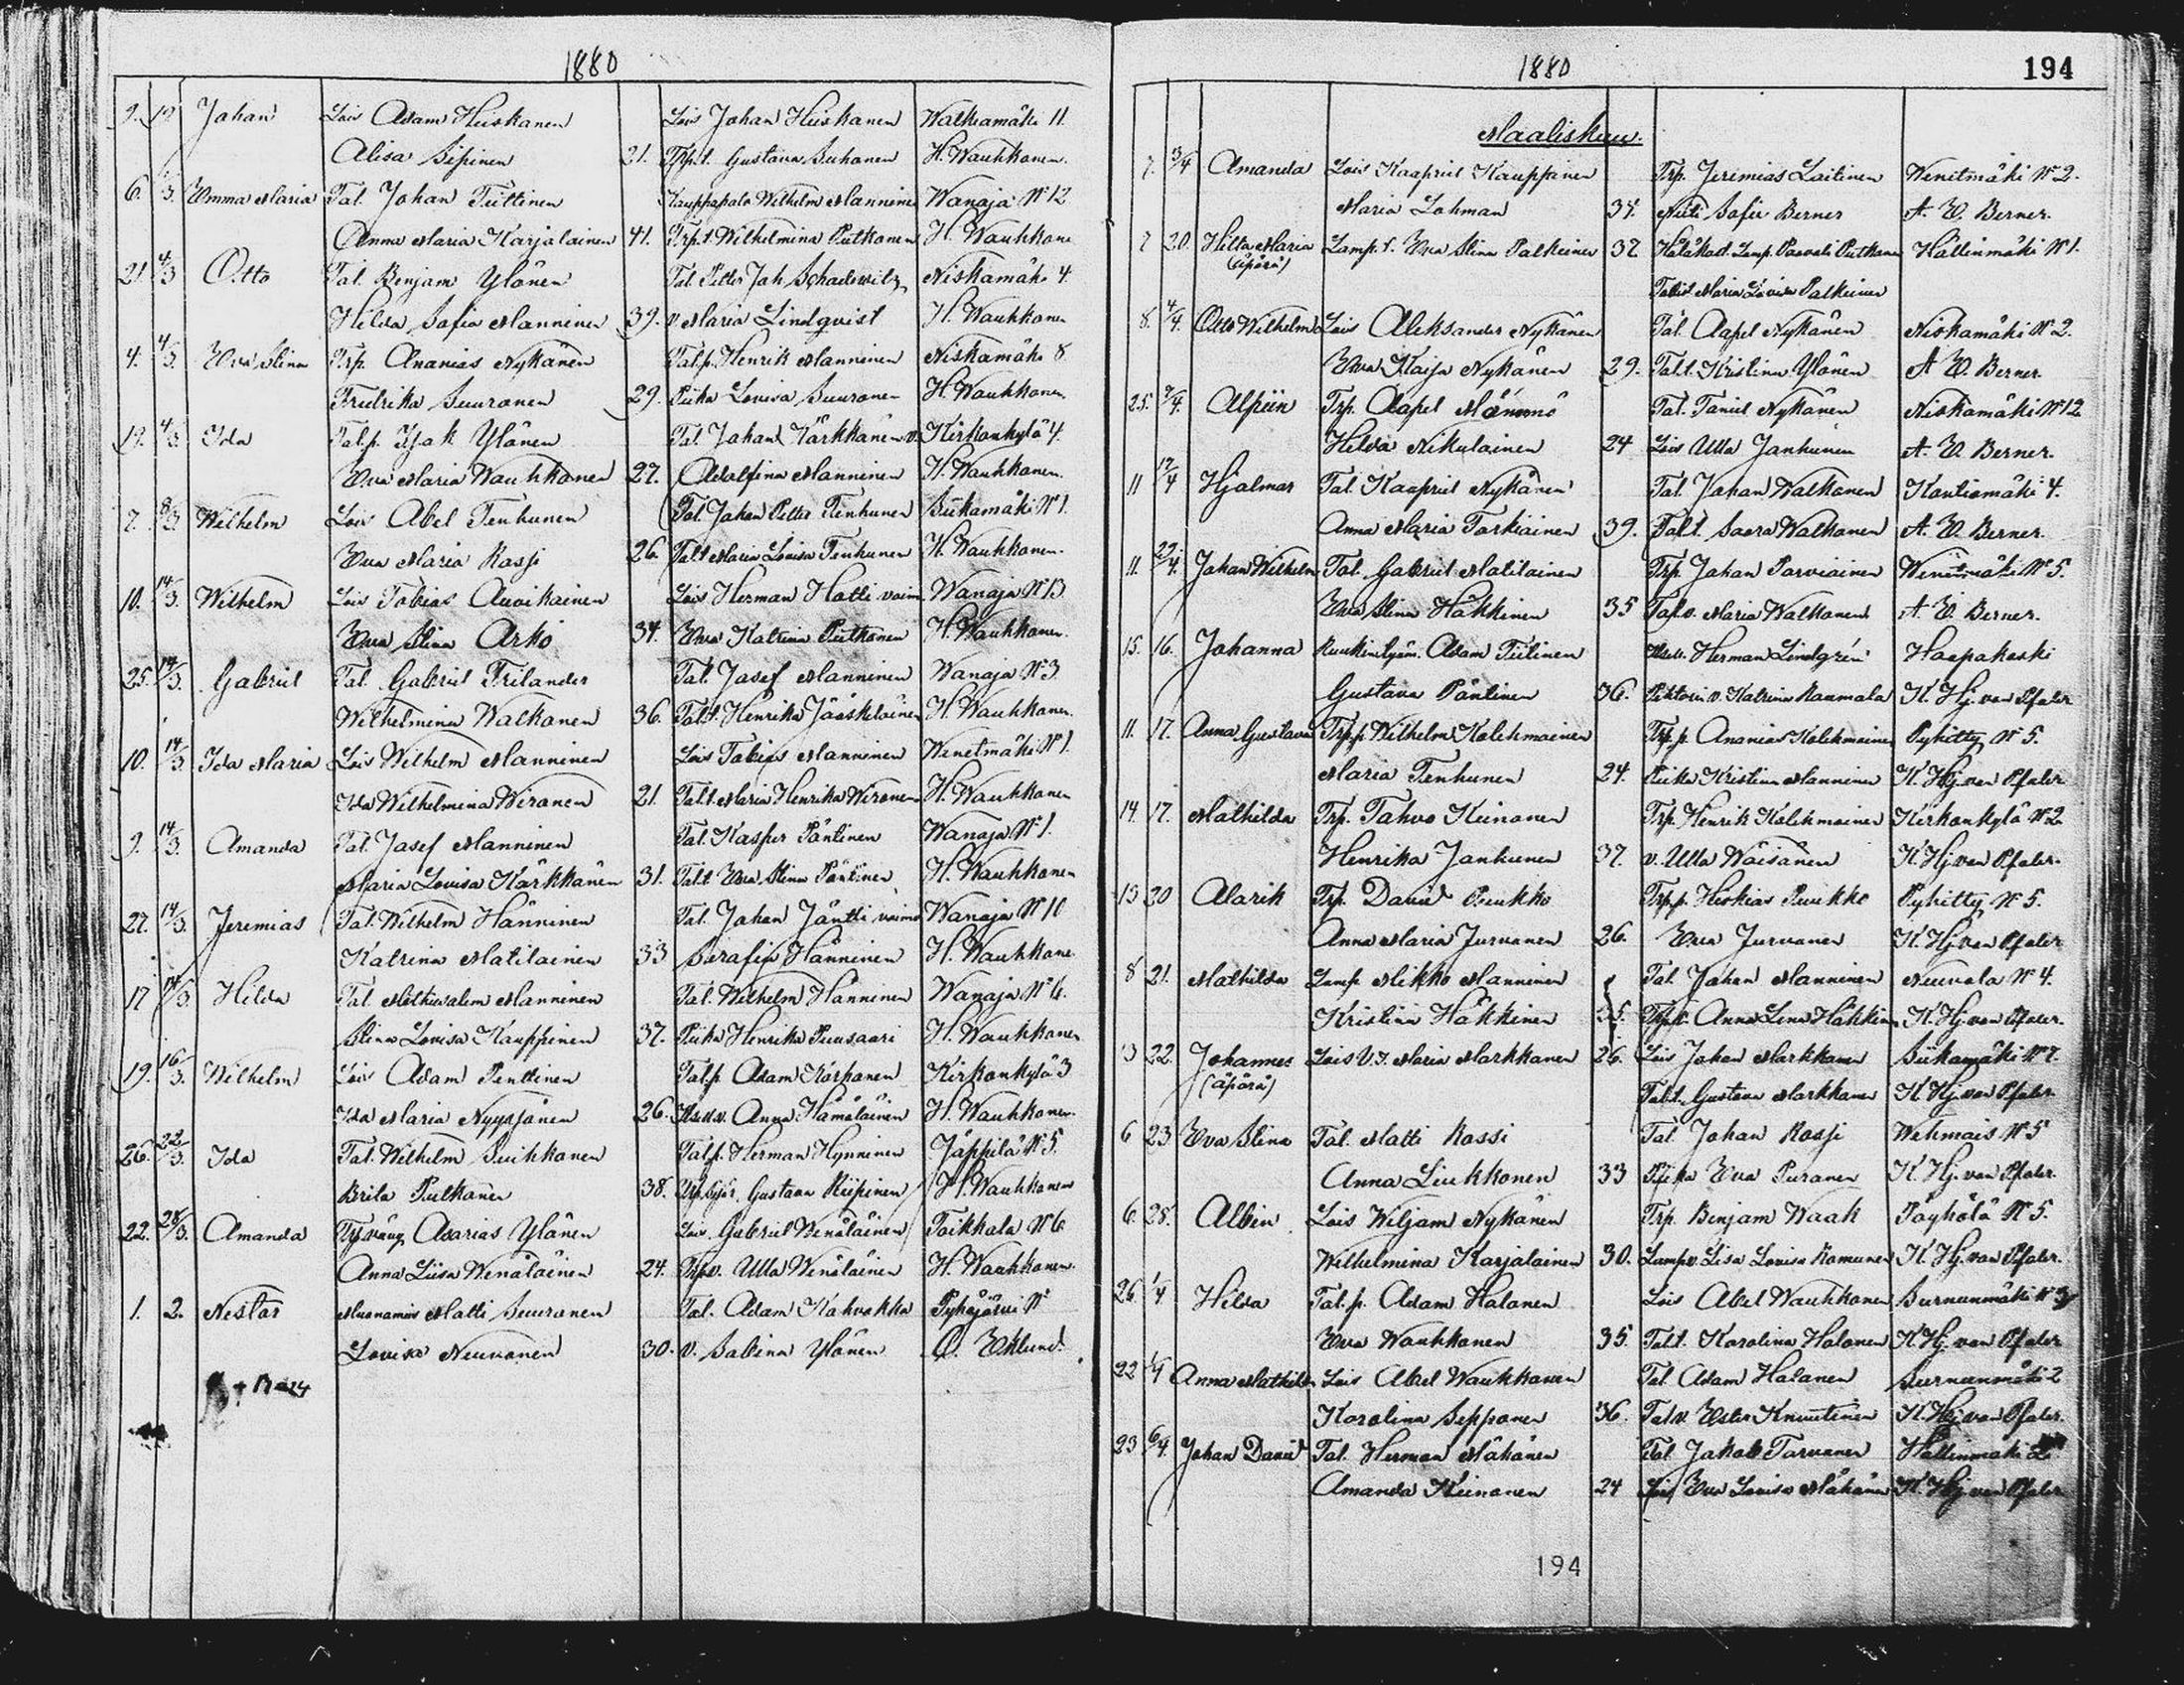 1880
9. 19 Johan Lois Adam Huskanen Lois Johan Huskanen Walkiamäki 11.
Alisa Sipinen 21. Trp.t. Gustava Suhonen H. Wauhkonen.
6. /3. Emma Maria Tal. Johan Tuttinen Kauppapalv Wilhelm Manninen Wanaja No 12
Anna Maria Karjalainen 41. Trp.t. Wilhelmina Putkonen H. Wauhkone
21. 4/3 Otto Tal. Benjam Ylönen Tal. Petter Joh. Schadewitz Niskamäki 4.
Hilda Sofia Manninen 39. v. Maria Lindqvist H. Wauhkonen
4. 4/3. Eva Stina Trp. Ananias Nykänen Tal.p. Henrik Manninen Niskamäki 8
Fredrika Suuronen 29. Piika Lovisa Suuronen H. Wauhkonen
19. 4/3 Ida Tal.p. Isak Ylönen Tal. Johan Kärkkänen v. Kirkonkylä 4.
Eva Maria Wauhkonen 27. Adolfina Manninen H. Wauhkonen.
7. 8/3. Wilhelm Lois Abel Tenhunen Tal. Johan Petter Tenhunen Siikamäki No 1.
Eva Maria Rossi 26 Tal.t. Maria Lovisa Tenhunen H. Wauhkonen.
10. 14/3. Wilhelm Lois Tobias Auvikainen Lois Herman Hatti vaim Wanaja No 13
Eva Stina Arko 34. Eva Katrina Putkonen H. Wauhkonen.
25. 14/3. Gabriel Tal. Gabriel Frilander Tal. Josef Manninen Wanaja No 3
Wilhelmina Walkonen 36. Tal.t. Henrika Jääskeläinen H. Wauhkonen.
10. 14/3 Ida Maria Lois Wilhelm Manninen Lois Tobias Manninen Wenetmäki No 1.
Ida Wilhelmina Wironen 21. Tal.t. Maria Henrika Wironen H. Wauhkonen
9. 14/3. Amanda Tal. Josef Manninen Tal. Kasper Pöntinen Wanaja No 1.
Maria Lovisa Kärkkänen 31. Tal.t. Eva Stina Pöntinen H. Wauhkonen
27. 14/3. Jeremias Tal. Wilhelm Hänninen Tal. Johan Jäntti vaimo Wanaja No 10
Katrina Matilainen 33 Serafia Hänninen H. Wauhkone
17 14/3. Hilda Tal. Methusalem Manninen Tal. Wilhelm Hänninen Wanaja No 6.
Stina Lovisa Kauppinen 37. Piika Henrika Puusaari H. Wauhkonen
19. 16/3. Wilhelm Lois Adam Penttinen Tal.p. Adam Korhonen Kirkonkylä 3
Ida Maria Nyyssönen 26. Anna Hämäläinen H. Wauhkonen.
26. 22/3. Ida Tal. Wilhelm Suihkonen Tal.p. Herman Hynninen Jäppilä No 5.
Brita Pulkanen 38. Gustava Riipinen H. Wauhkonen
22. 28/3. Amanda Asarias Ylönen Lois Gabriel Wenäläinen Toikkala No 6
Anna Liisa Wenäläinen 24. Trp.v. Ulla Wenäläinen H. Wauhkonen.
1. 2. Nestor Muonamies Matti Suuronen Tal. Adam Kahvekka Pyhäjärvi No
Lovisa Neuvonen 30. v. Sabina Ylönen O. Eklund.
1880 194
Maaliskuu.
7. 3/4 Amanda Lois Kaapriel Kauppinen Trp. Jeremias Laitinen Wenetmäki No 2.
Maria Lohman 34. Neiti Sofie Berner A. E. Berner.
7 20. Hilta Maria Lamp.t. Eva Stina Palkeinen 37 Lamp. Paavali Putkonen Hällinmäki No 1.
(äpärä) Maria Lovisa Palkeinen
8. 4/4. Otto Wilhelm Lois Aleksander Nykänen Tal. Aapel Nykänen Niskamäki No 2.
Eva Kaisa Nykänen 29. Tal.t. Kristina Ylönen A. E. Berner.
25. 7/4. Alpiin Trp. Aapel Mäninö Tal. Taniel Nykänen Niskamäki No 12
Hilda Nikulainen 24 Lois Ulla Janhunen A. E. Berner.
11 12/4 Hjalmar Tal. Kaapriel Nykänen Tal. Johan Walkonen Kontiomäki 4.
Anna Maria Torkiainen 39. Tal.t. Saara Walkonen A. E. Berner.
11. 22/4. Johan Wilhelm Tal. Gabriel Matilainen Trp. Johan Parviainen Wenetmäki No 5.
Eva Stina Häkkinen 35 Tal.v. Maria Walkonen A. E. Berner.
15. 16. Johanna Ruukin työm. Adam Tiilinen Herman Lindgrén Haapakoski
Gustava Pöntinen 36. v. Katrina Raumala K. Hj. von Pfaler
11. 17. Anna Gustava Trp.p. Wilhelm Kolehmainen Trp.p. Ananias Kolehmainen Pyhitty No 5.
Maria Tenhunen 24. Piika Kristina Manninen K. Hj. von Pfaler
14. 17. Mathilda Trp. Tahvo Keinonen Trp. Henrik Kolehmainen Kirkonkylä No 2
Henrika Janhunen 37. v. Ulla Wäisänen K. Hj. von Pfaler.
13 20 Alarik Trp. David Puukko Trp.p. Heskias Puukko Pyhitty No 5.
Anna Maria Jurvanen 26. Eva Jurvanen K. Hj. von Pfaler
8 21. Mathilda Lamp. Mikko Manninen Tal. Johan Manninen Neuvola No 4.
Kristina Häkkinen 35. Anna Lena Häkkinen K. Hj. von Pfaler.
13 22. Johannes Lois Maria Markkanen 26. Lois Johan Markkanen Siikamäki No 7.
(äpärä) Tal.t. Gustava Markkanen K. Hj. von Pfaler
6 23 Eva Stina Tal. Matti Rossi Tal. Johan Rossi Wehmais No 5
Anna Liukkonen 33 Piika Eva Puranen K. Hj. von Pfaler.
6. 28. Albin Lois Wiljam Nykänen Trp. Benjam Waak Päyhölä No 5.
Wilhelmina Karjalainen 30. Lamp.v. Lisa Lovisa Romunen K. Hj. von Pfaler.
26 1/4 Hilda Tal.p. Adam Halonen Lois Abel Wauhkonen Surnunmäki No 3
Eva Wauhkonen 35. Tal.t. Karolina Halonen K. Hj. von Pfaler
22 1/4 Anna Mathilda Lois Abel Wauhkonen Tal. Adam Halonen Surnunmäki 2
Karolina Sepponen 36. Tal.v. Ester Knuutinen K. Hj. von Pfaler.
23 6/4. Johan David Tal. Herman Mähönen Tal. Jakob Tarvanen Hällinmäki 2
Amanda Keinanen 24 Lois Eva Lovisa Mähönen K. Hj. von Pfaler
194